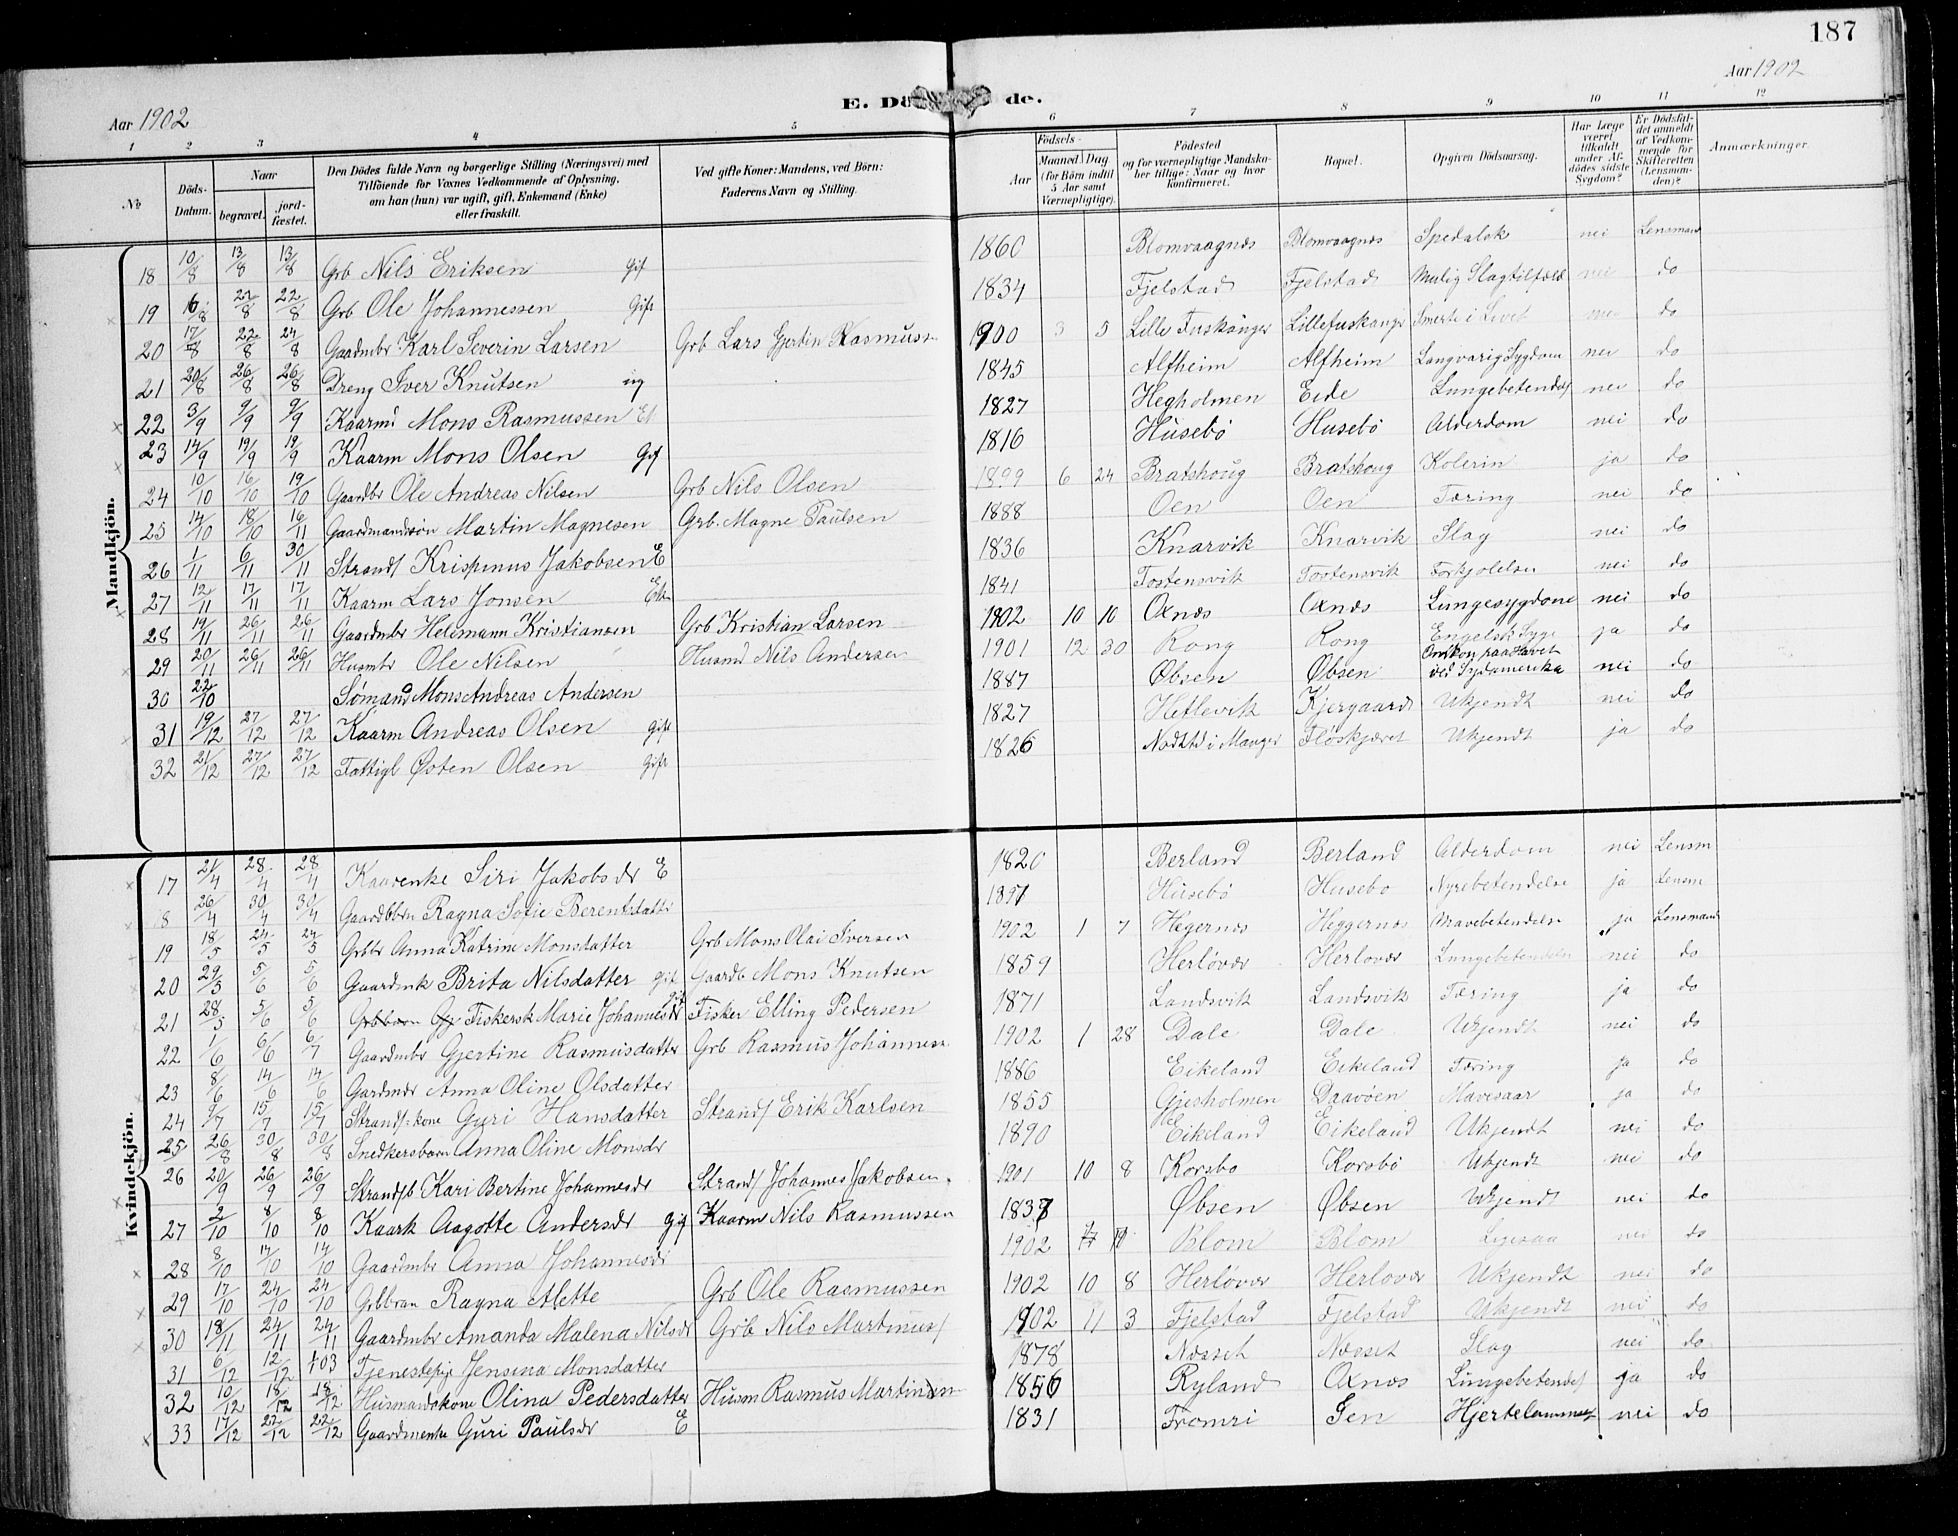 187
Aar 1902
E. Dö de.
Aar 1902
1 2 3 4 5 6 7 8 9 10 11 12
No
Döds-Datum.
Naar
begravet.
jord-fæstet.
Den Dödes fulde Navn og borgerlige Stilling (Næringsvei) med
Tilföiende for Voxnes Vedkommende af Oplysning,
om han (hun) var ugift, gift, Enkemand (Enke)
eller fraskilt.
Ved gifte Koner: Mandens, ved Börn:
Faderens Navn og Stilling.
Födsels-
Aar
Maaned. Dag
(for Börn indtil
5 Aar samt
Værnepligtige).
Födested
og for værnepligtige Mandska-
ber tillige: Naar og hvor
konfirmeret.
Bopæl.
Opgiven Dödsaarsag.
Har Læge
været
tilkaldt
under Af-
dödes sidste
Sygdom?
Er Dödsfal-
det anmeldt
af Vedkom-
mende for
Skifteretten
(Lensman-
den)?
Anmærkninger.
Mandkjön.
18 10/8 13/8 13/8 Grb Nils Eriksen Gif 1860 Blomvaagnæs Blomvaagnæs Spedalsk nei Lensmand
19 16/8 22/8 22/8 Grb Ole Johannessen Gift 1834 Fjelstad Fjelstad Mulig Slagtilfæld nei do
20 17/8 22/8 24/8 Gaardmbr Karl Severin Larsen Grb Lars Gjertin Rasmuss 1900 3 5 Lille Fuskanger Lillefuskanger Smerte i Livet nei do
21 20/8 26/8 26/8 Dreng Iver Knutsen ug 1845 Alfheim Alfheim Langvarig Sygdom nei do
22 3/9 9/9 9/9 Kaarmd Mons Rasmussen 1827 Hegholmen Eide Lungebetendels nei do
23 14/9 19/9 19/9 Kaarm Mons Olsen Gif 1816 Husebö Husebö Alderdom nei do
24 10/10 16/10 19/10 Gaardbr Ole Andreas Nilsen Grb Nils Olsen 1899 6 24 Bratshoug Bratshoug Kolerin ja do
25 14/10 18/10 16/11 Gaardmandssön Martin Magnesen Grb. Magne Paulsen 1888 Oen Oen Tæring nei do
26 1/11 6/11 30/11 Strands Krispinus Jakobsen E 1836 Knarvik Knarvik Slag nei do
27 12/11 17/11 17/11 Kaarm Lars Jonsen 1841 Tostensvik Tostensvik Forkjølelse nei do
28 19/11 26/11 26/11 Gaardmbr Helemann Kristiansen Grb Kristian Larsen 1902 10 10 Oxnæs Oxnæs Lungesygdom nei do
29 20/11 26/11 26/11 Husmbr Ole Nilsen Husmd Nils Andersen 1901 12 30 Rong Rong Engelsk Syge ja do
30 22/10 Sømand Mons Andreas Andersen 1887 Øbsen Øbsen Omkom paa Havet ved Sydamerika nei do
31 19/12 27/12 27/12 Kaarm Andreas Olsen gift 1827 Hetlevik Kjergaard Ukjendt nei do
32 21/12 27/12 27/12 Fattigl Østen Olsen Gift 1826 i Manger Fløskjæret Ukjendt ja do
Kvindekjön.
17 21/4 28/4 28/4 Kaarenke Siri Jakobsdr E 1820 Berland Berland Alderdom nei Lensm
18 26/4 30/4 30/4 Gaardbbrn Ragna Sofie Berentsdatter Husebö Husebo Nyrebetendelse ja Lensm
19 18/5 24/5 24/5 Grbbr Anna Katrine Monsdatter Grb Mons Olai Iversen 1902 1 7 Hegernæs Heggernæs Mavebetendelse ja Lensmand
20 29/5 5/6 5/6 Gaardmk Brita Nilsdatter gif Gaardb Mons Knutsen 1859 Herløvær Herlovær Lungebetendelse nei do
21 28/5 5/6 5/6 Fiskersk Marie Johannesdr gif Fisker Elling Pedersen 1871 Landsvik Landsvik Tæring ja do
22 1/6 6/6 6/7 Gaardmbr Gjertine Rasmusdatter Grb Rasmus Johanness 1902 1 28 Dale Dale Ukjendt nei do
23 8/6 14/6 14/6 Gardmdr Anna Oline Olsdatter 1886 Eikeland Eikeland Tæring ja do
24 9/7 15/7 15/7 Strands:kone Gyri Hansdatter Strands Erik Karlsen 1855 Gjesholmen Daavöen Mavesaar ja do
25 26/8 30/8 30/8 Snedkersbarn Anna Oline Monsdr 1890 Eikeland Eikeland Ukjendt nei do
26 20/9 26/9 26/9 Strandsb Kari Bertine Johannesdr Strands Johannes Jakobsen. 1901 10 8 Korsbo Korsbö Ukjendt nei do
27 2/10 8/10 8/10 Kaark Aagotte Andersdr gif Kaarm Nils Rasmussen 1837 Øbsen Øbsen Ukjendt nei do
28 8/10 14/10 14/10 Gaardmbr Anna Johannesdr 1902 Blom Blom nei do
29 17/10 24/10 24/10 Grbbran Ragna Alette Grb Ole Rasmussen 1902 10 8 Herløvær Herlovær Ukjendt nei do
30 18/11 24/11 24/11 Gaardmbr Amanda Malena Nilsdr Grb Nils Martinus 1902 11 3 Fjelstad Fjelstad Ukjendt nei do
31 6/12 12/12 1/03 Tjenestepi Jensina Monsdatter 1878 Næsset Næsset Slag nei do
32 10/12 18/12 18/12 Husmandskone Olina Pedersdatter Husm Rasmus Martinsen 1856 Ryland Oxnæs Lungebetendels ja do
33 17/12 22/12 22/12 Gaardmenke Guri Paulsdr E 1831 Tromri Sen nei do